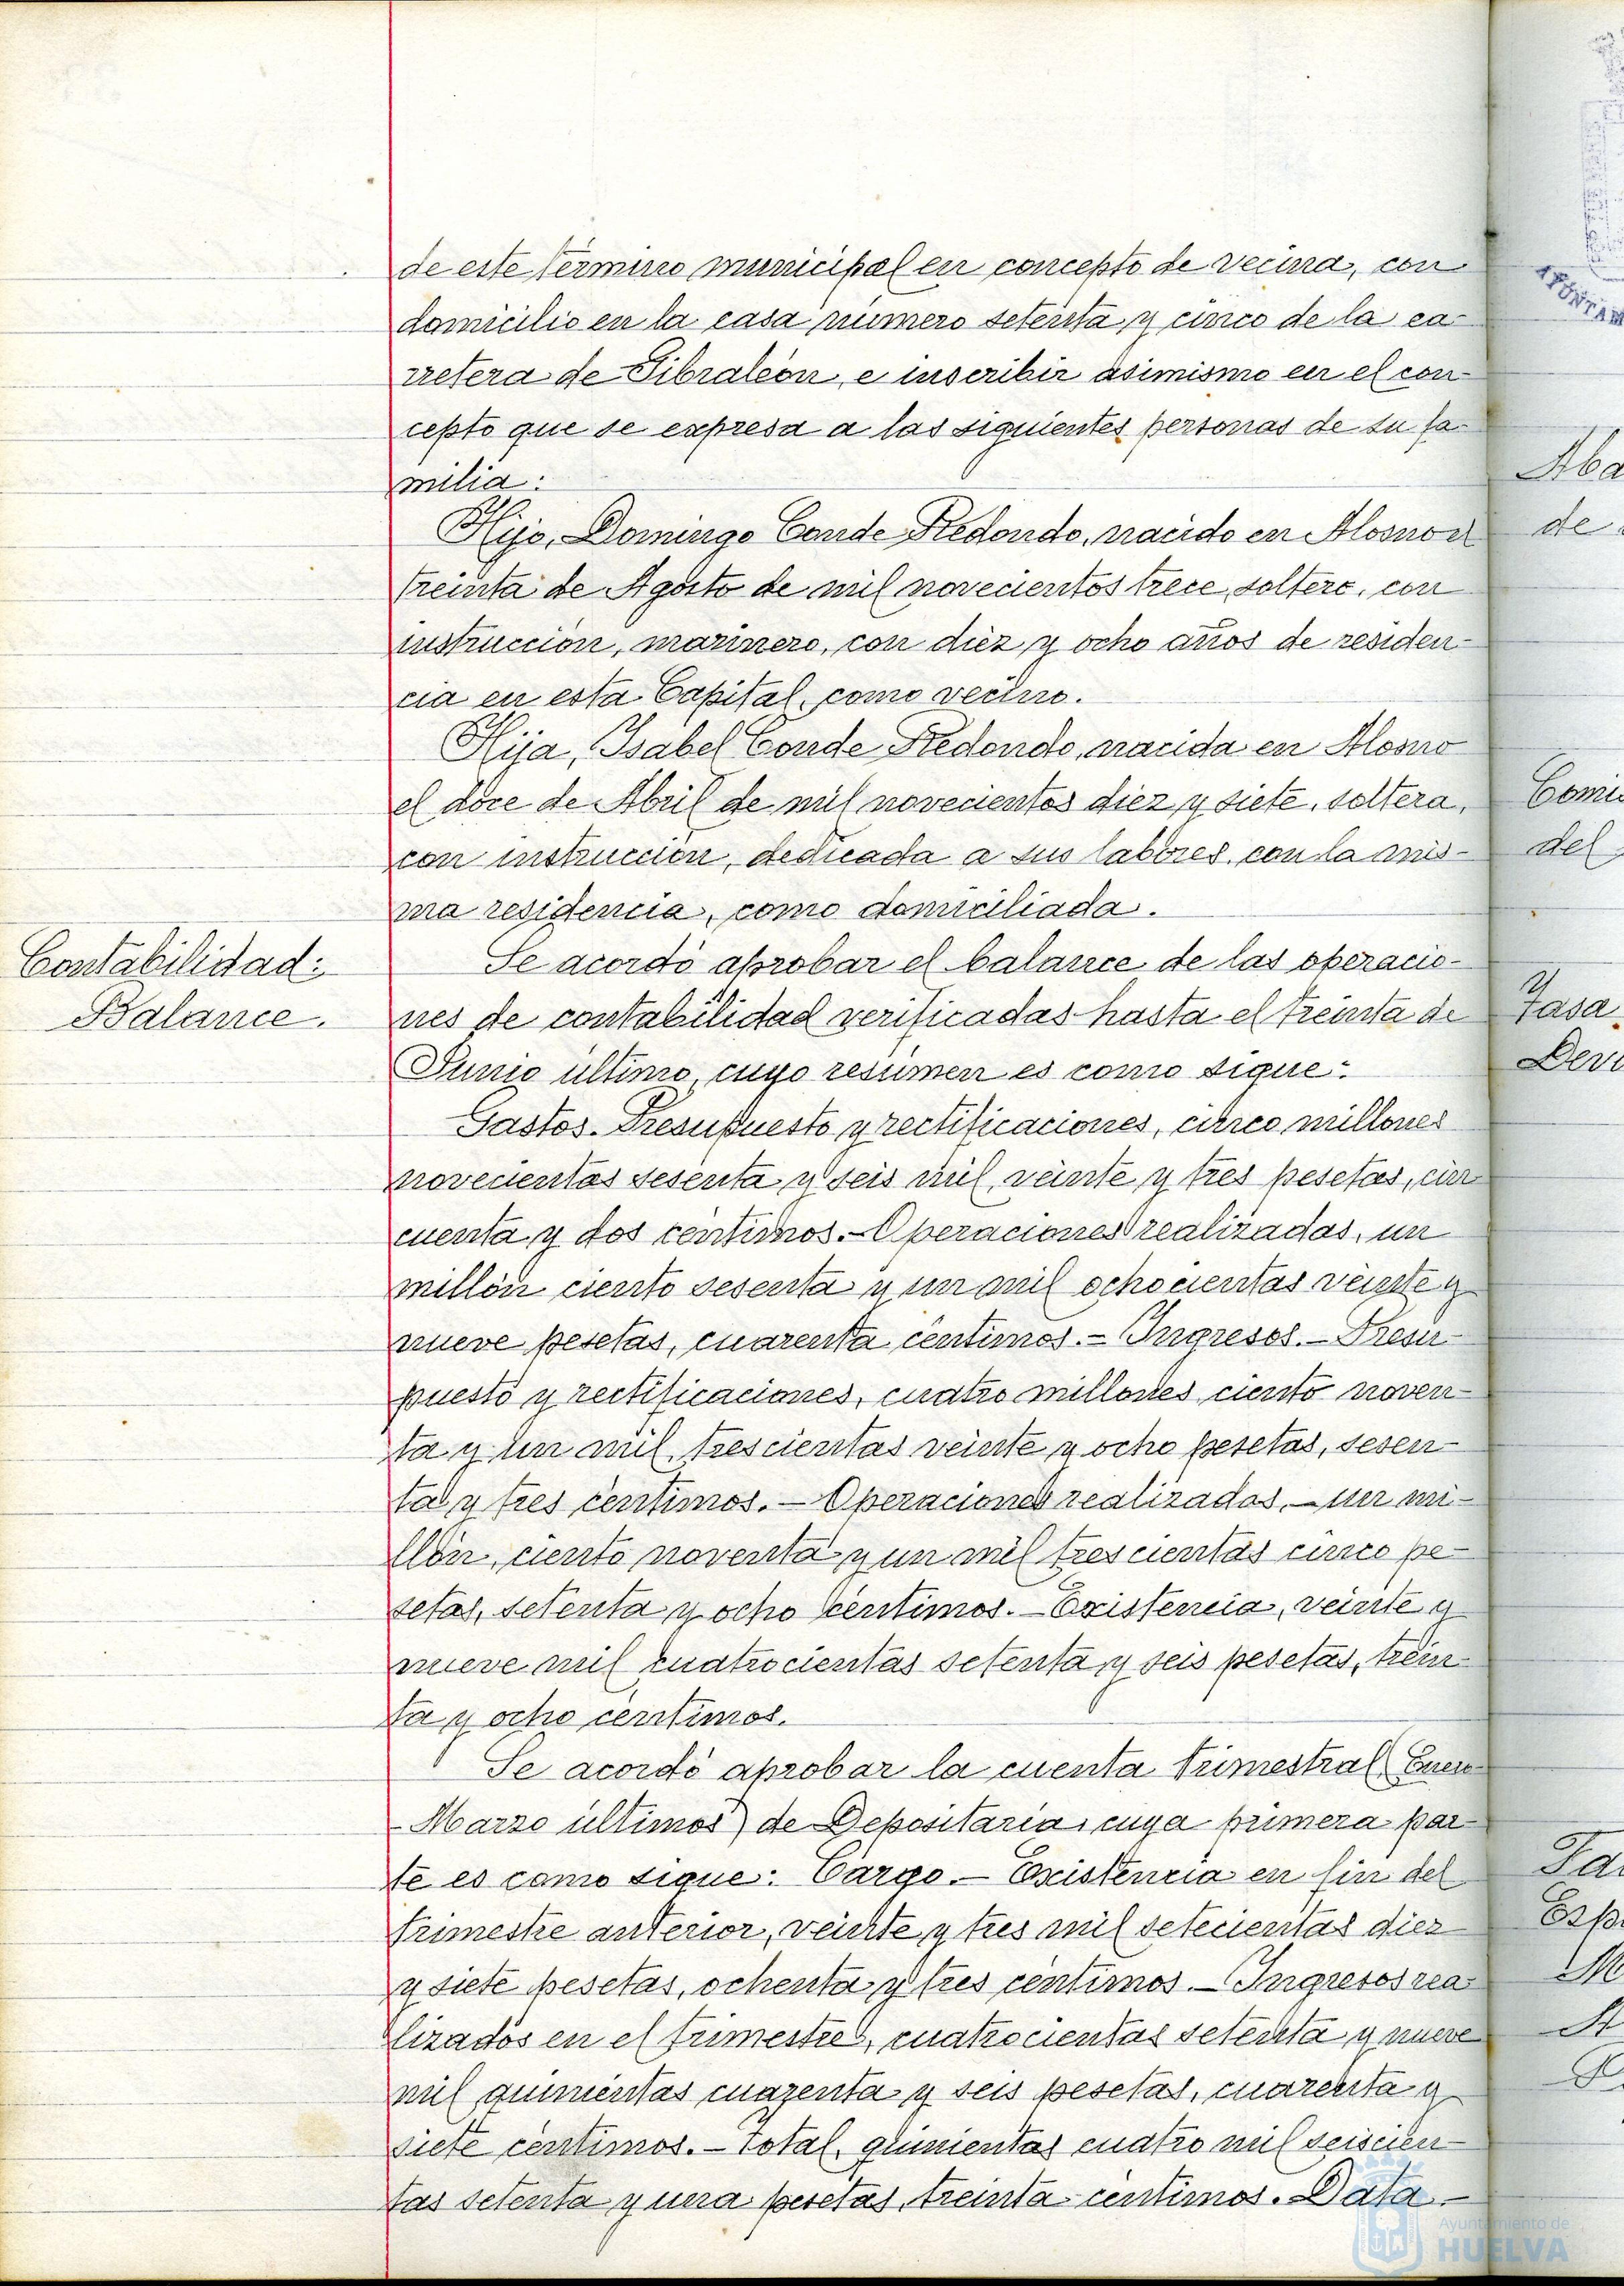 de este término municipal en concepto de vecina, con
domicilio en la casa número setenta y cinco de la ca-
rretera de Gibraleón, e inscribir asimismo en el con-
cepto que se expresa a las siguientes personas de su fa-
milia:
Hijo, Domingo Conde Redondo, nacido en Alosno el
treinta de Agosto de mil novecientos trece, soltero, con
instrucción, marinero, con diez y ocho años de residen-
cia en esta Capital, como vecino.
Hija, Isabel Conde Redondo, nacida en Alosno
el doce de Abril de mil novecientos diez y siete, soltera,
con instrucción, dedicada a sus labores, con la mis-
ma residencia, como domiciliada.
Contabilidad:
Balance.
Se acordó aprobar el balance de las operacio-
nes de contabilidad verificadas hasta el treinta de
Junio último, cuyo resúmen es como sigue:
Gastos.- Presupuesto y rectificaciones, cinco millones
novecientas sesenta y seis mil, veinte y tres pesetas, cin-
cuenta y dos céntimos.- Operaciones realizadas, un
millón ciento sesenta y un mil ochocientas veinte y
nueve pesetas, cuarenta céntimos.- Ingresos.- Presu-
puesto y rectificaciones, cuatro millones ciento noven-
ta y un mil, trescientas veinte y ocho pesetas, sesen-
ta y tres céntimos.- Operaciones realizadas,- un mi-
llón, ciento noventa y un mil trescientas cinco pe-
setas, setenta y ocho céntimos.- Existencia, veinte y
nueve mil cuatrocientas setenta y seis pesetas, trein-
ta y ocho céntimos.
Se acordó aprobar la cuenta trimestral (Enero-
-Marzo últimos) de Depositaria, cuya primera par-
te es como sigue: Cargo.- Existencia en fin del
trimestre anterior, veinte y tres mil setecientas diez
y siete pesetas, ochenta y tres céntimos.- Ingresos rea-
lizados en el trimestre, cuatrocientas setenta y nueve
mil quinientas cuarenta y seis pesetas, cuarenta y
siete céntimos.- Total, quinientas cuatro mil seiscien-
tas setenta y una pesetas, treinta céntimos. Data.-
Aba
de
Comis
del
Tasa
Devi
Fa
Esp
M
A
Ayuntamiento de
HUELVA